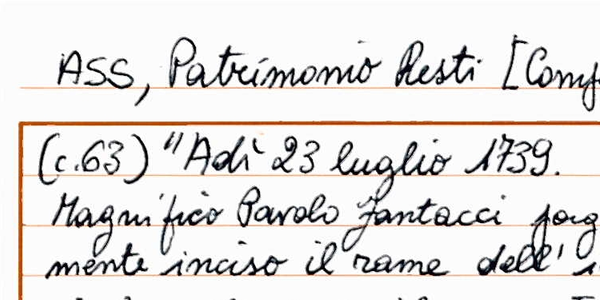 ASS, Patrimonio Resti [Comp
(c.63) "Adì 23 luglio 1739.
Magnifico Pavolo Fantacci
mente inciso il rame dell'